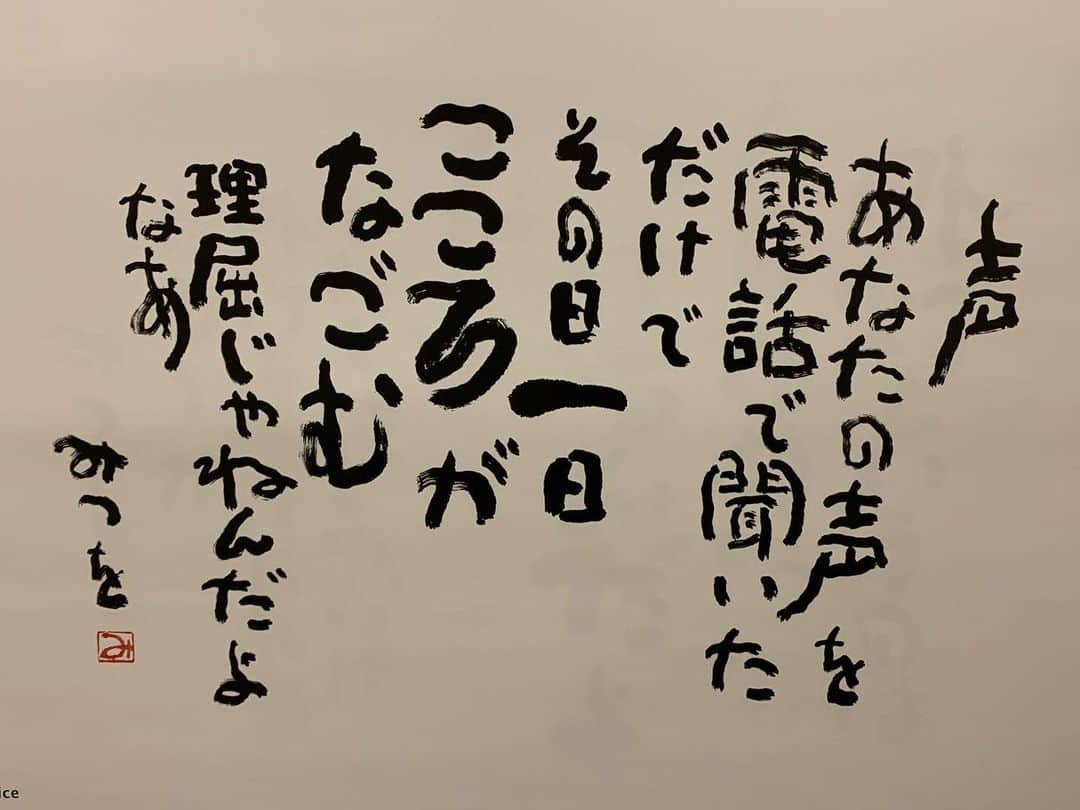 声
あなたの声を
電話で聞いた
だけで
その日一日
こころが
なごむ
理屈じゃねんだよ
なあ
みつを
み
ice